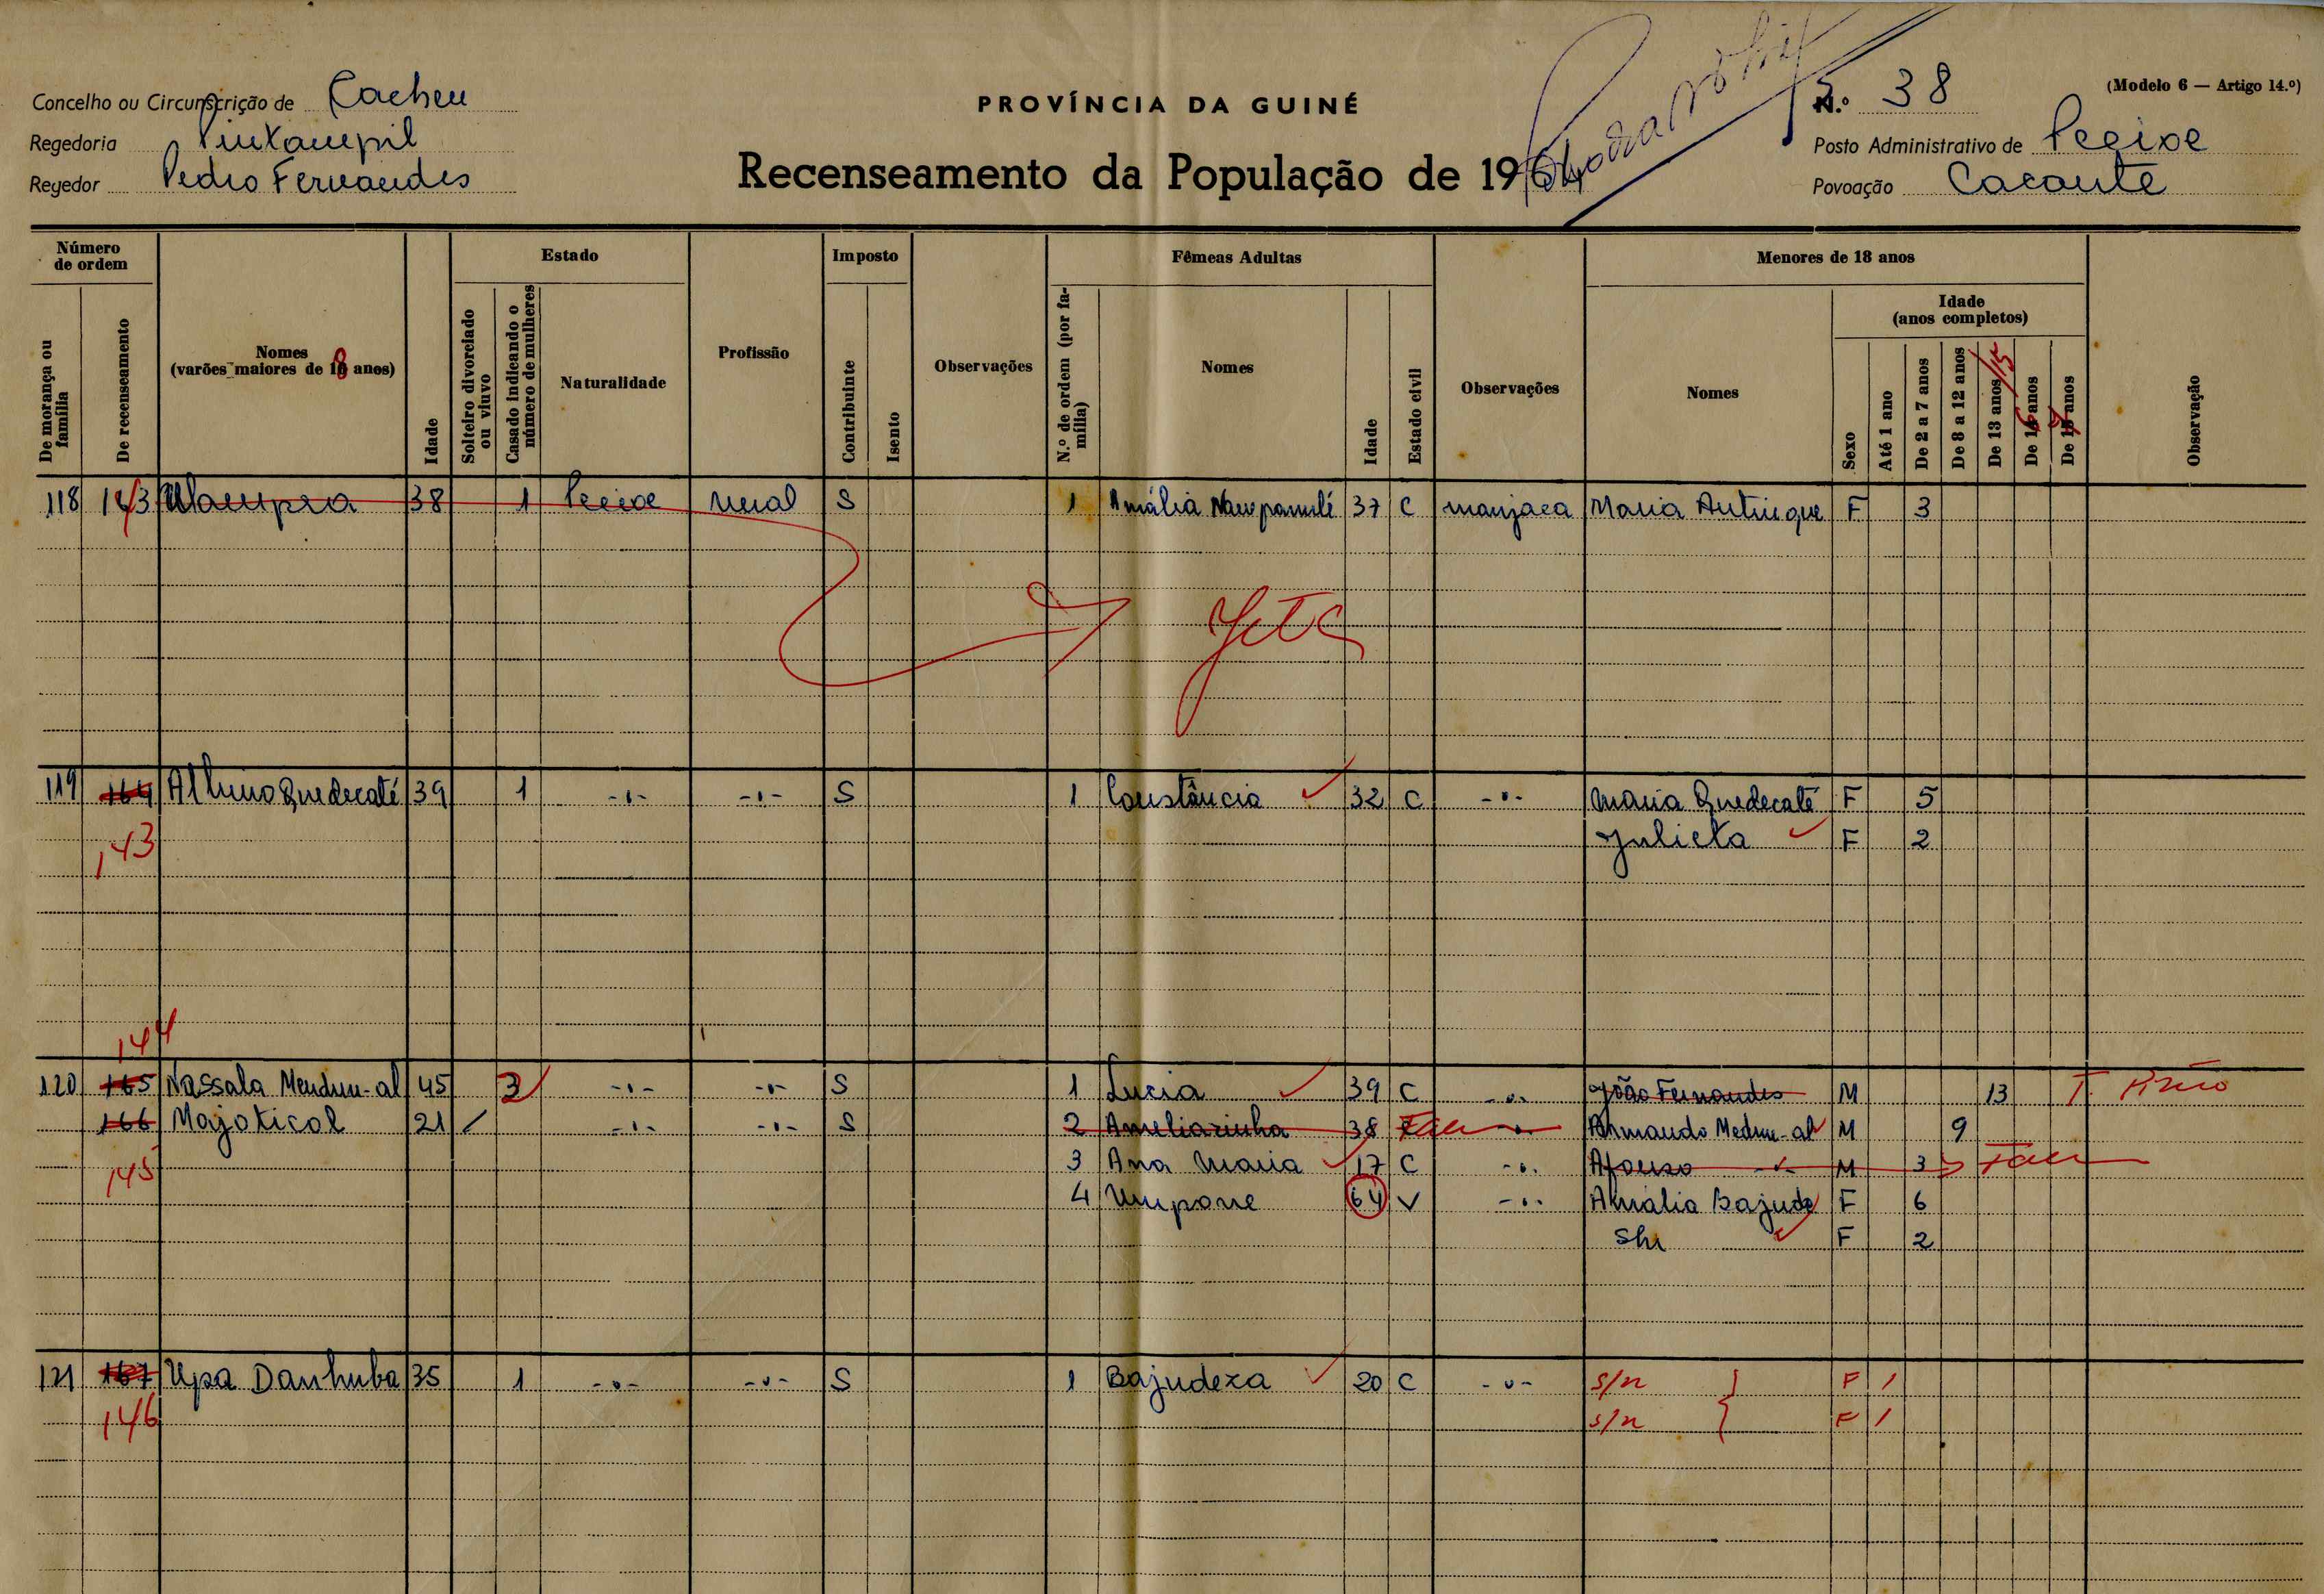 Concelho ou Circunscrição de Cacheu
PROVÍNCIA DA GUINÉ
N.º 38
(Modelo 6 — Artigo 14.º)
Regedoria
Posto Administrativo de Pecixe
Regedor Pedro Fernandes
Recenseamento da População de 1964
Povoação Cacante
Número de ordem
Estado
Imposto
Fêmeas Adultas
Menores de 18 anos
De morança ou família
De recenseamento
Nomes (varões maiores de 18 anos)
Idade
Solteiro divorciado ou viuvo
Casado indicando o número de mulheres
Naturalidade
Profissão
Contribuinte
Isento
Observações
N.º de ordem (por família)
Nomes
Idade
Estado civil
Observações
Nomes
Sexo
Idade (anos completos)
Até 1 ano
De 2 a 7 anos
De 8 a 12 anos
De 13 anos /15
De 16 anos
De 17 anos
Observação
118 143 38 1 Pecixe rural S 1 Amália 37 C manjaca Maria F 3
Jeta
119 164 Albino Quedecaté 39 1 -"- -"- S 1 Constância 32 C -"- Maria Quedecaté F 5
143 Julieta F 2
144
120 165 Nassala Mendum-al 45 2 -"- -"- S 1 Lucia 39 C -"- João Fernandes M 13
166 Majotical 21 / -"- -"- S 2 Ameliazinha 38 -"- Armando Medum-al M 9
145 3 Ana Maria 17 C -"- Afonso M 3
4 Umpone 64 V -"- Amália Bajuda F 6
F 2
121 167 Upa Danhuba 35 1 -"- -"- S 1 Bajudeza 20 C -"- s/n F 1
146 s/n F 1